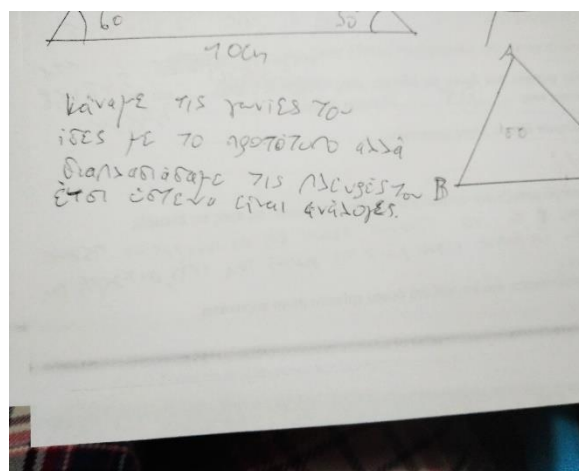 60
50
10cm
κάναμε τις γωνίες του
ίδες με το προτότυπο αλλά
διαπλασιάσαμε τις πλευρές του
έτσι ώστε να είναι ανάλογες.
A
B